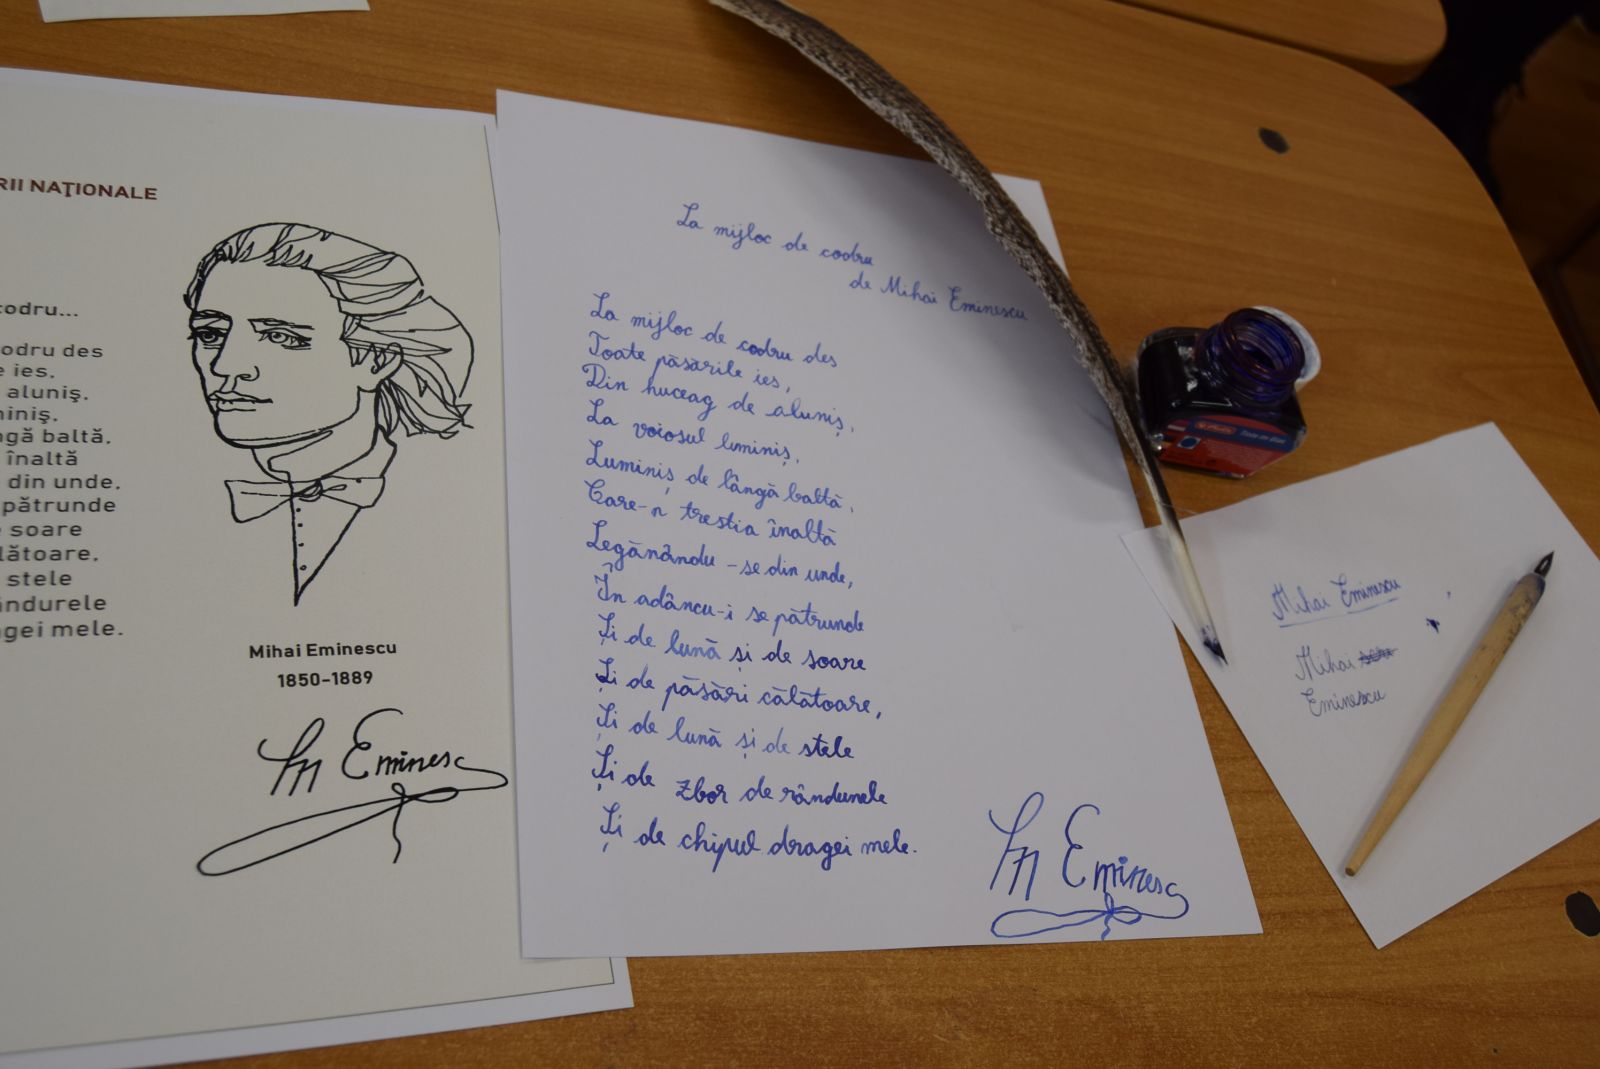 RII NAŢIONALE
codru...
odru des
e ies,
aluniş,
miniş,
ngă baltă,
înaltă
din unde,
pătrunde
soare
lătoare,
stele
ândurele
agei mele.
Mihai Eminescu
1850-1889
M Eminesc
La mijloc de codru
de Mihai Eminescu
La mijloc de codru des
Toate păsările ies,
Din huceag de aluniș,
La voiosul luminiș,
Luminiș de lângă baltă,
Care-n trestia înaltă
Legănându-se din unde,
În adâncu-i se pătrunde
Și de lună și de soare
Și de păsări călătoare,
Și de lună și de stele
Și de zbor de rândunele
Și de chipul dragei mele.
M Eminesc
Mihai Eminescu
Mihai
Eminescu